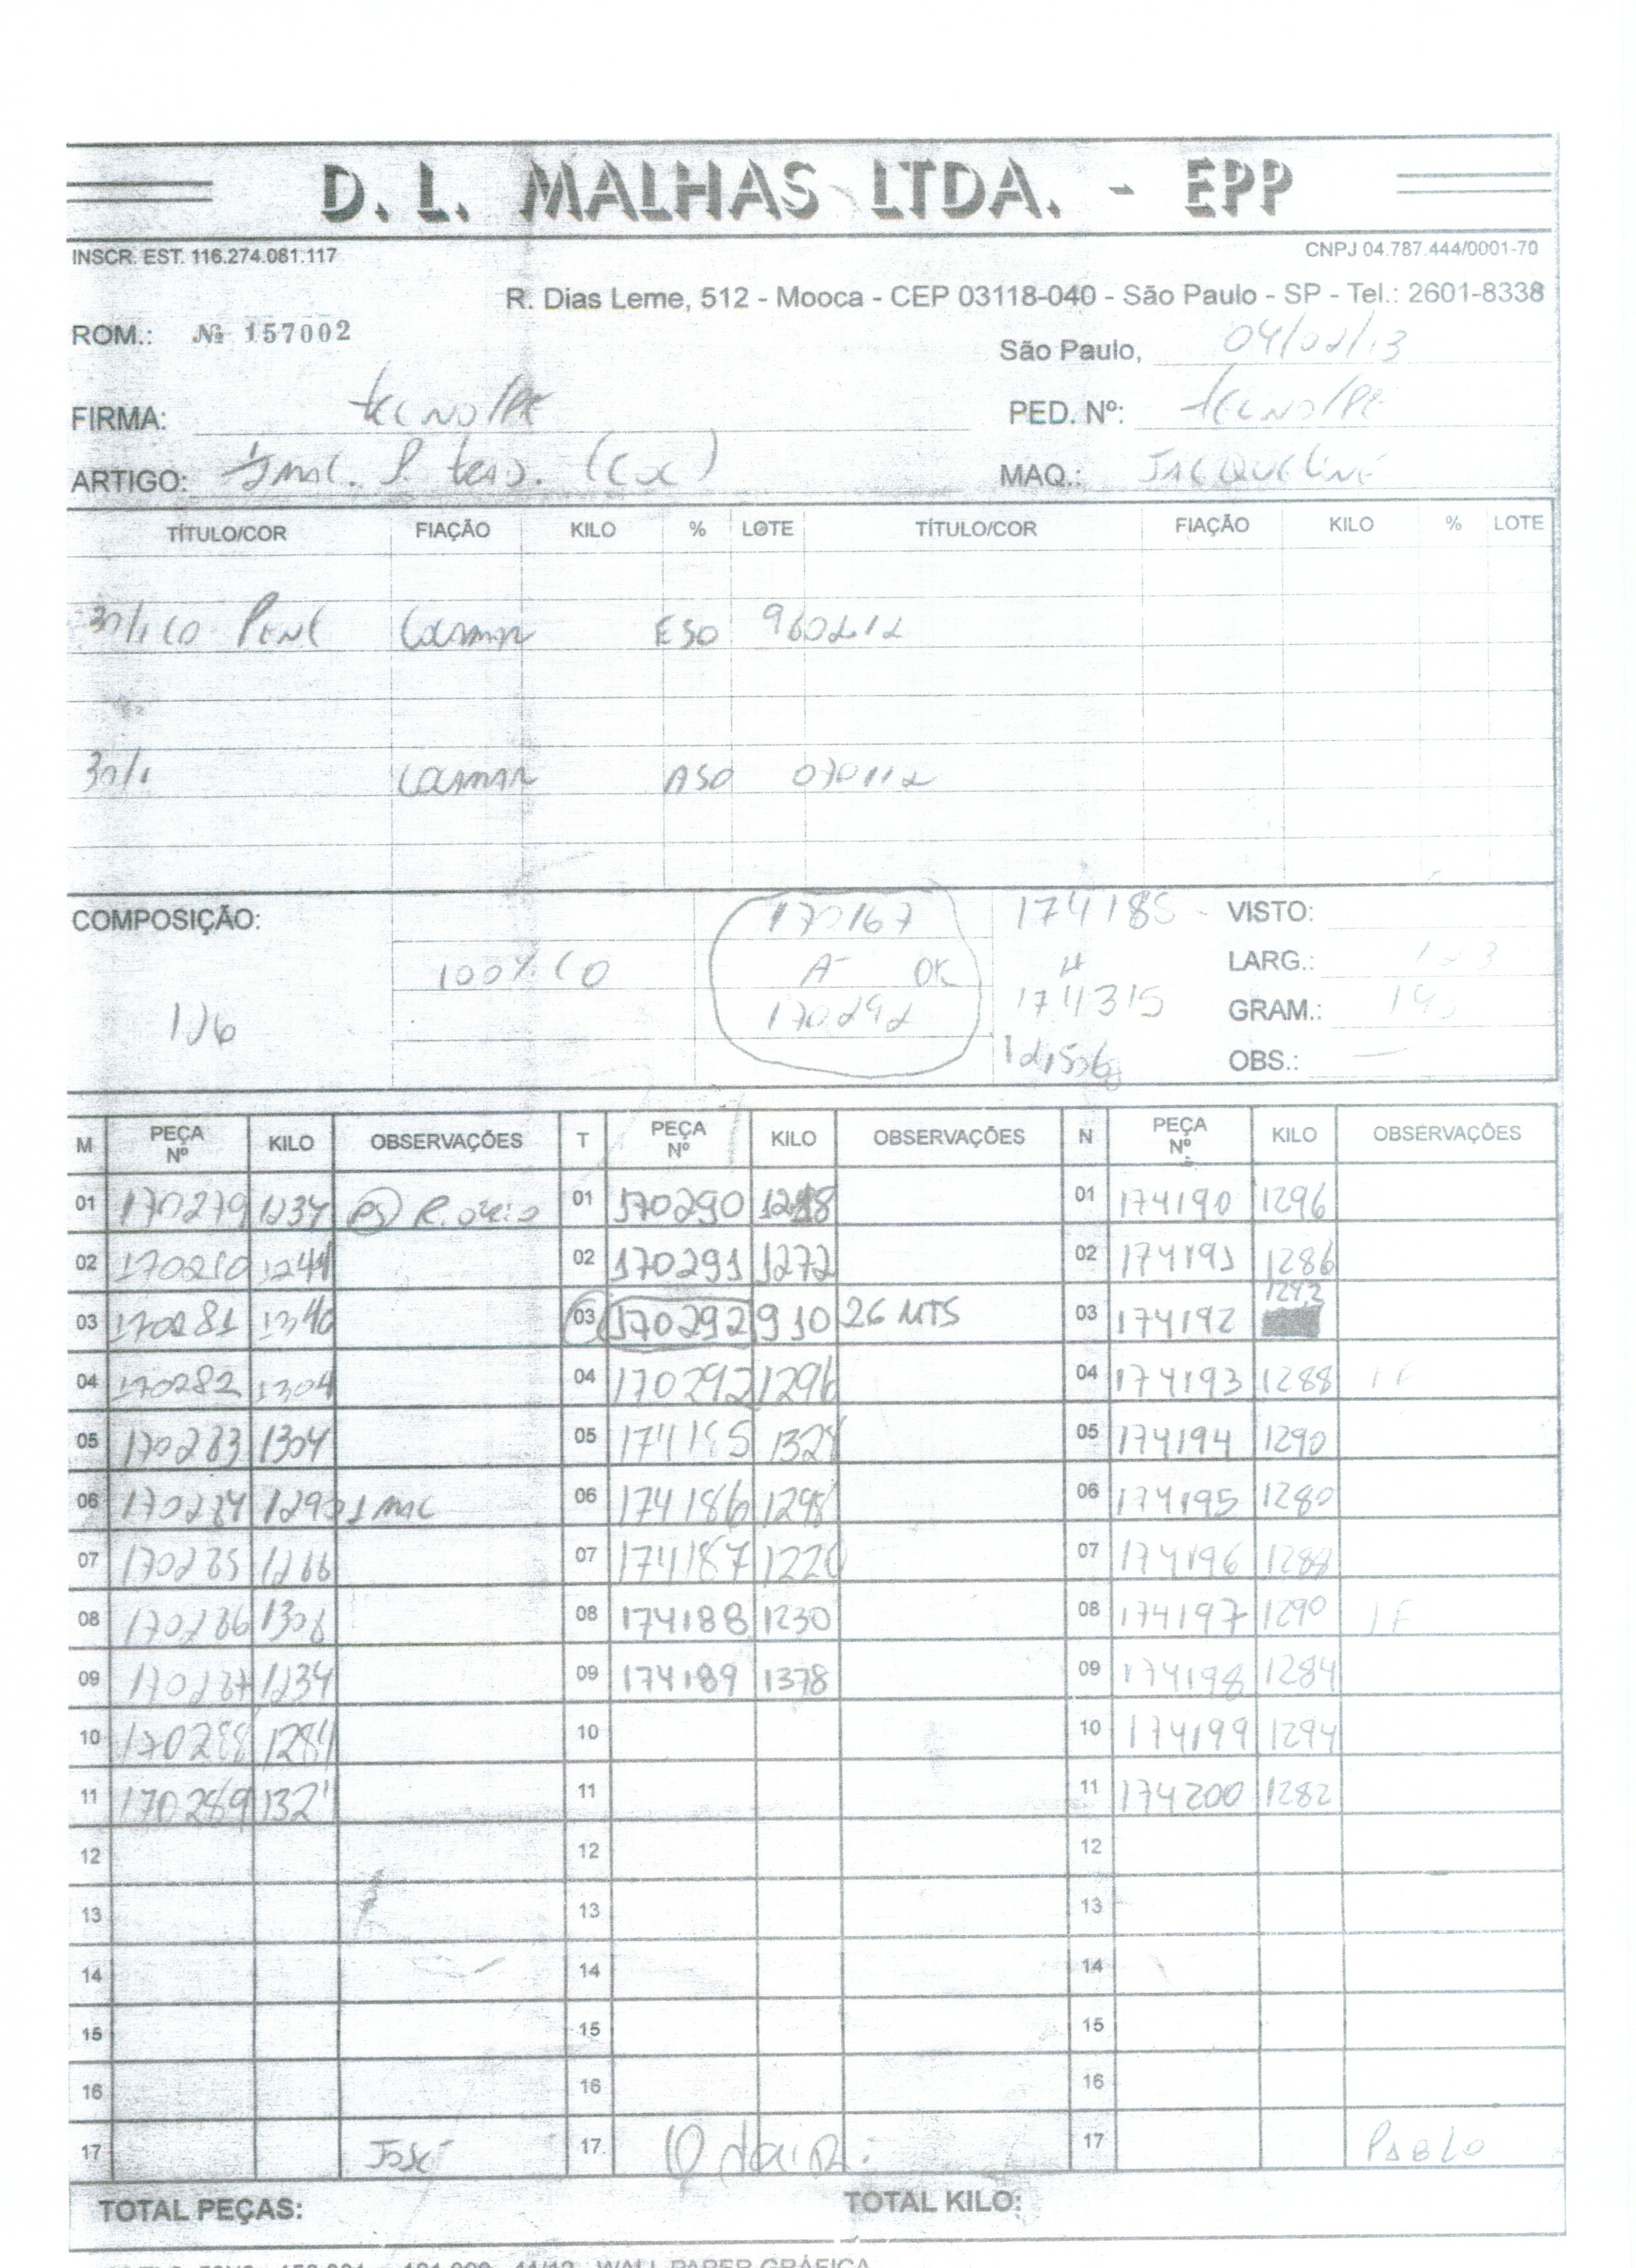 D. L. MALHAS LTDA. - EPP
INSCR. EST. 116.274.081.117
CNPJ 04.787.444/0001-70
R. Dias Leme, 512 - Mooca - CEP 03118-040 - São Paulo - SP - Tel.: 2601-8338
ROM.: Nº 157002
São Paulo, 04/02/13
FIRMA: tecno/PE PED. Nº: tecno/PE
ARTIGO: (Cx) MAQ.: JACQUELINE
TÍTULO/COR FIAÇÃO KILO % LOTE TÍTULO/COR FIAÇÃO KILO % LOTE
30/1 CO PENT E50 960212
30/1 A50 070112
COMPOSIÇÃO: 170167 174185 - VISTO:
100% CO A OK LARG.:
126 170292 174315 GRAM.:
OBS.:
M PEÇA Nº KILO OBSERVAÇÕES T PEÇA Nº KILO OBSERVAÇÕES N PEÇA Nº KILO OBSERVAÇÕES
01 170279 1234 01 170290 01 174190 1296
02 170280 02 170291 1272 02 174191 1286
03 170281 1340 03 170292 910 26 MTS 03 174192 1292
04 170282 1304 04 170292 1296 04 174193 1288
05 170283 1304 05 174185 05 174194 1290
06 170284 1290 06 174186 1298 06 174195 1280
07 170285 1266 07 174187 07 174196 1288
08 170286 1308 08 174188 1230 08 174197 1290 1F
09 170287 1234 09 174189 1378 09 174198 1284
10 170288 1284 10 10 174199 1294
11 170289 11 11 174200 1282
12 12 12
13 13 13
14 14 14
15 15 15
16 16 16
17 José 17 Odair. 17 PABLO
TOTAL PEÇAS: TOTAL KILO: